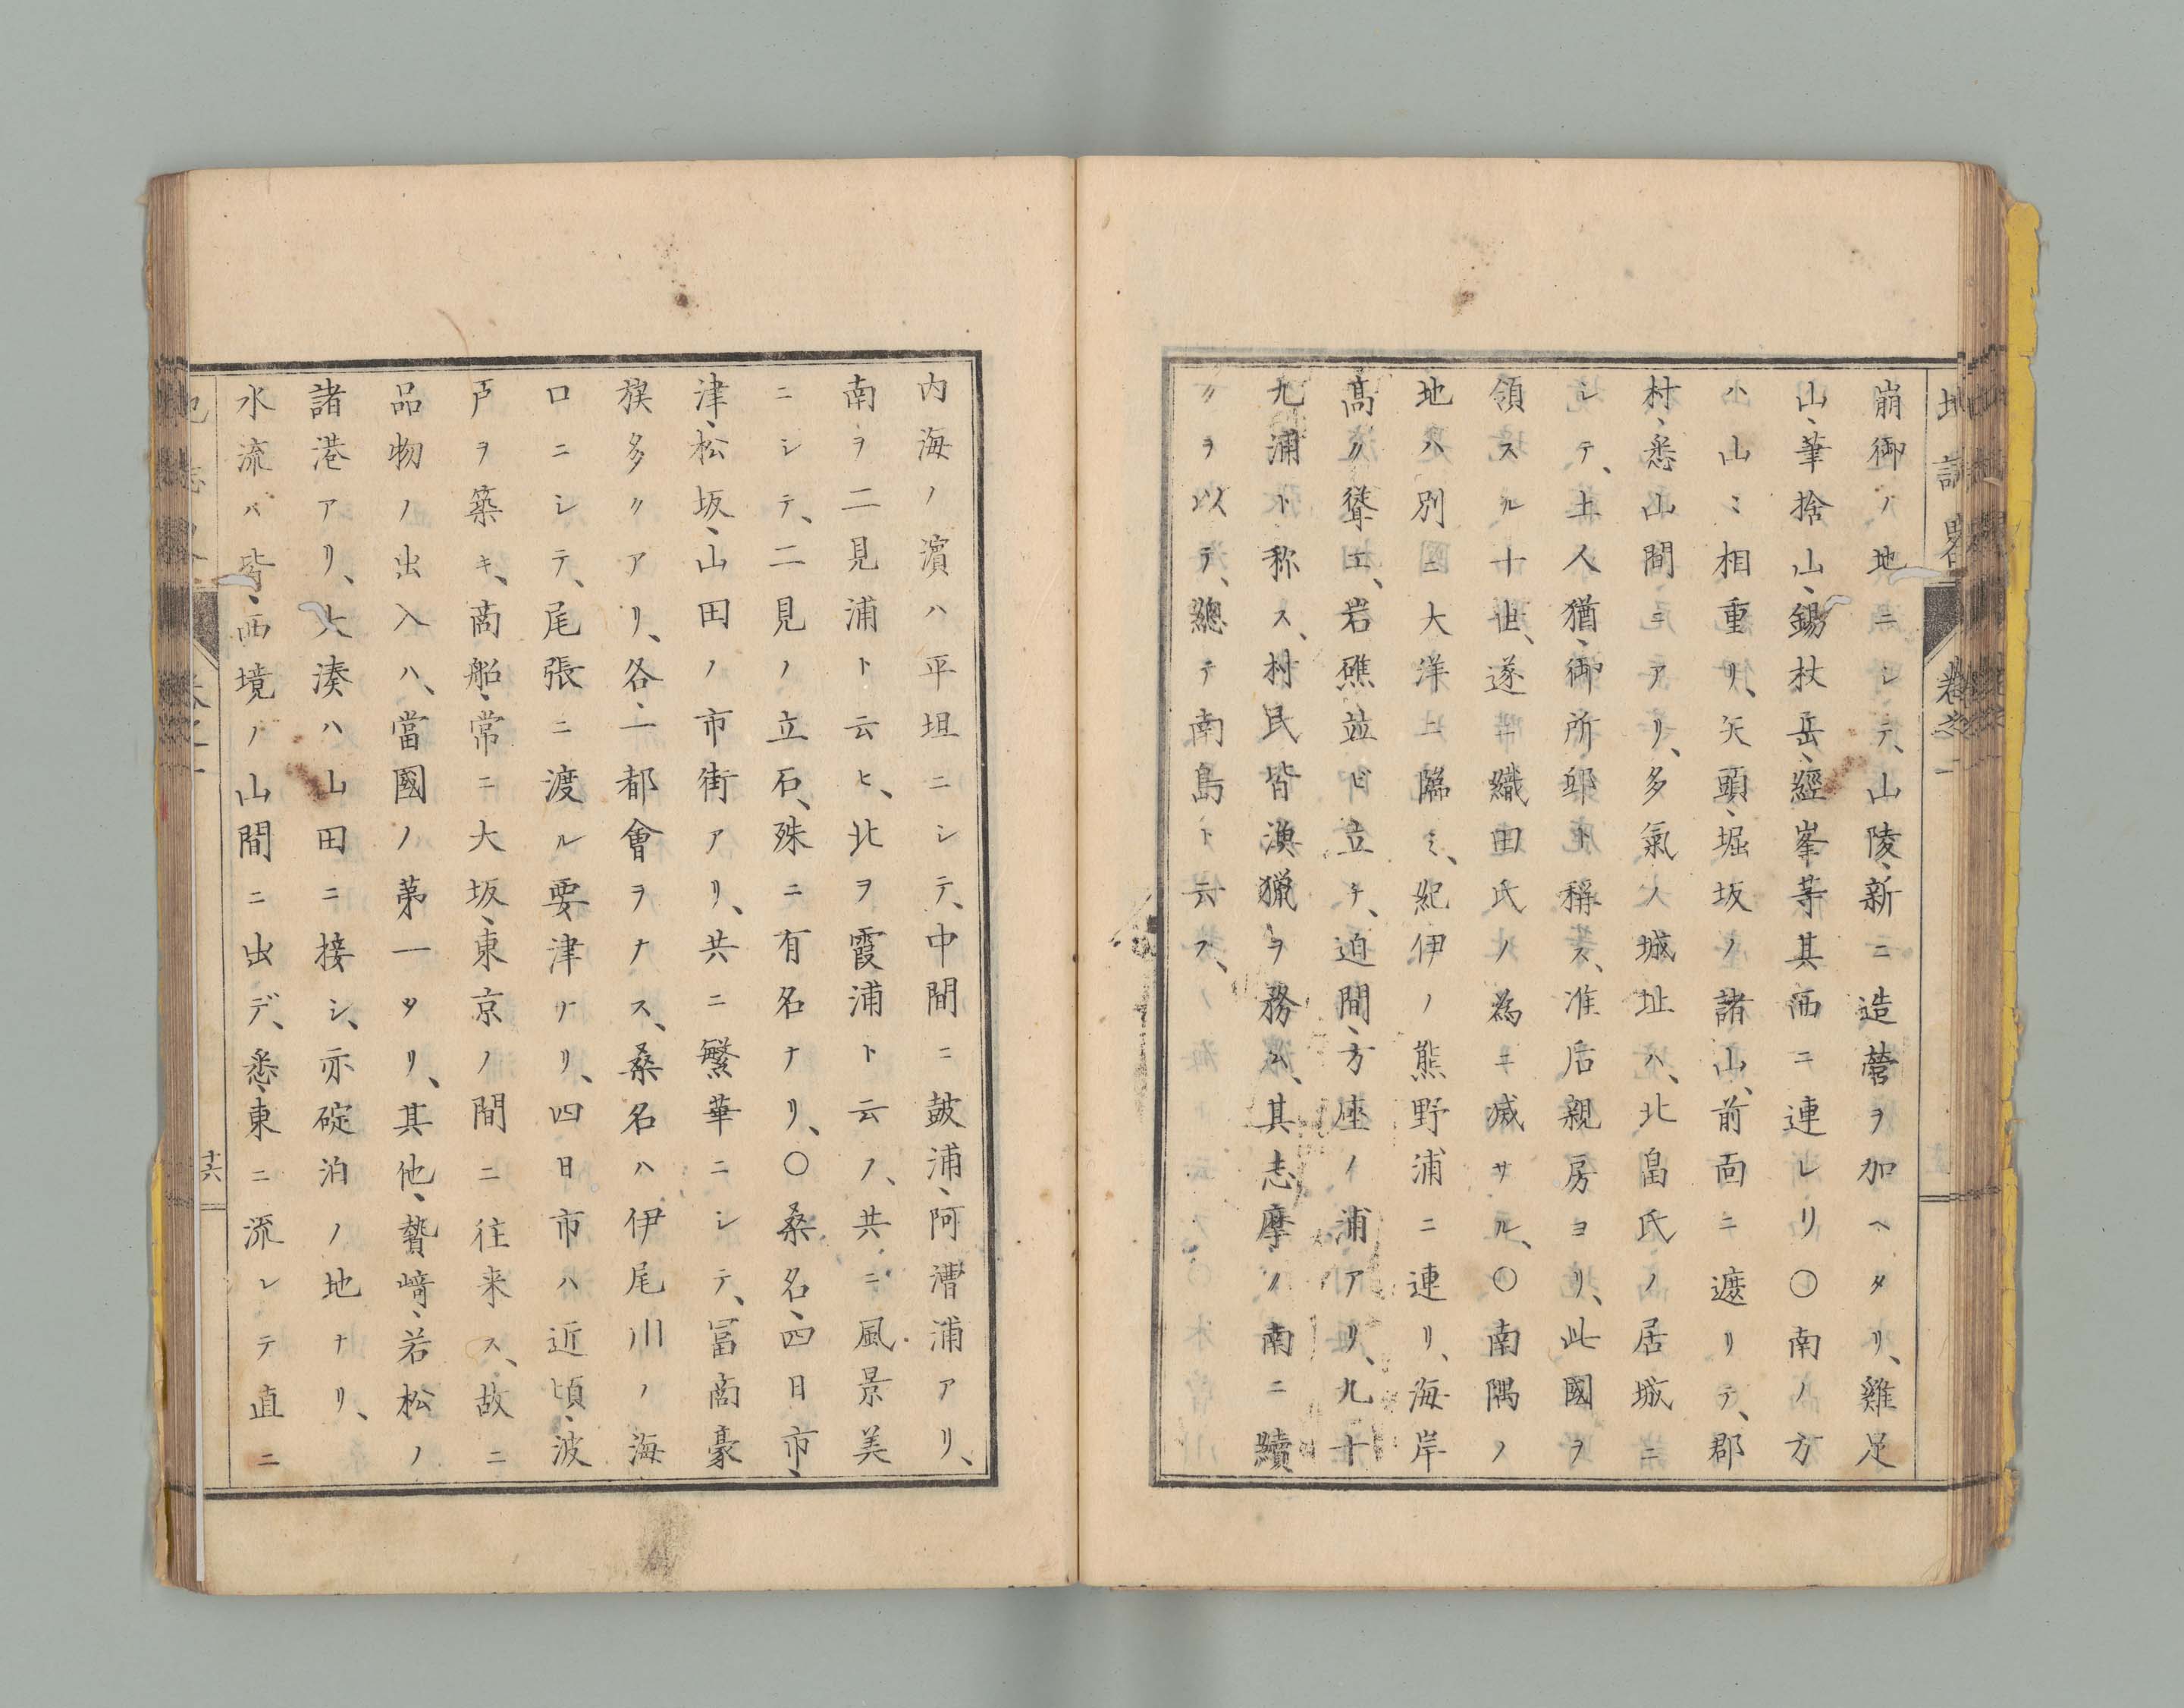 地誌畧 卷之一
崩御ノ地ニシテ、山陵、新ニ造營ヲ加ヘタリ、雞足
山、筆捨山、錫杖岳、經峯等其西ニ連レリ〇南ノ方
ハ山ミ相重リ、矢頭、堀坂ノ諸山、前面ニ遮リテ、郡
村、悉山間ニアリ、多氣ノ城址ハ、北畠氏ノ居城ニ
シテ、土人猶、御所邸ト稱ス、准后親房ヨリ、此國ヲ
領スル十世、遂ニ織田氏ノ為ニ滅サル、〇南隅ノ
地ハ別ニ大洋ニ臨ミ、紀伊ノ熊野浦ニ連リ、海岸
髙ク聳エ、岩礁並ビ立チ、迫間、方座ノ浦アリ、九十
九浦ト称ス、村民皆漁猟ヲ務ム、其志摩ノ南ニ續
クヲ以テ、總テ南島ト云ス、
内海ノ濵ハ平坦ニシテ、中間ニ鼓浦、阿漕浦アリ、
南ヲ二見浦ト云ヒ、北ヲ霞浦ト云ノ、共ニ風景美
ニシテ、二見ノ立石、殊ニ有名ナリ、〇桑名、四日市、
津、松坂、山田ノ市街アリ、共ニ繁華ニシテ、冨商豪
族多クアリ、各、一都會ヲナス、桑名ハ伊尾川ノ海
口ニシテ、尾張ニ渡ル要津ナリ、四日市ハ近頃、波
戸ヲ築キ、商船、常ニ大坂、東京ノ間ニ往来ス、故ニ
品物ノ出入ハ、當國ノ苐一タリ、其他、贄﨑、若松ノ
諸港アリ、大湊ハ山田ニ接シ、亦碇泊ノ地ナリ、
水流ハ皆、西境ノ山間ニ出デ、悉、東ニ流レテ直ニ
十六